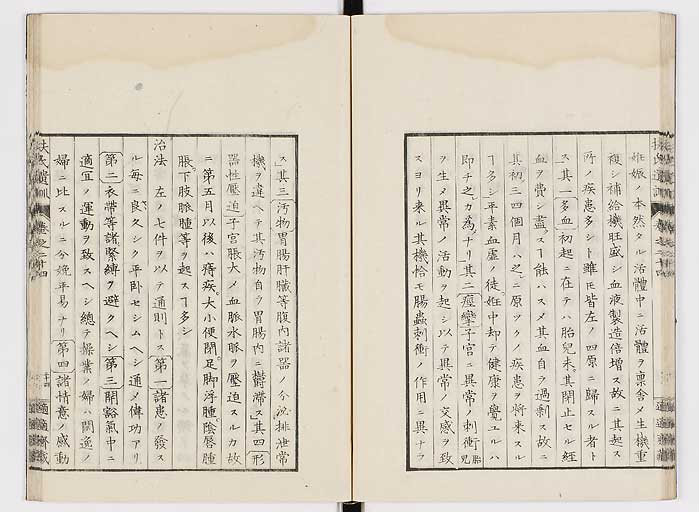 妊娠ノ本然タル活體中ニ活體ヲ禀舎メ生機重
複シ補給機旺盛シ血液製造倍增ス故ニ其起ス
所ノ疾患多シト雖𪜈皆左ノ四原ニ歸スル者ト
ス其一多血初起ニ在テハ胎兒未タ其閉止セル經
血ヲ費シ盡スヿ能ハスメ其血自ラ過剩ス故ニ
其初三四個月ハ之ニ原ツクノ疾患ヲ將來スル
ヿ多シ平素血虚ノ徒妊中却テ健康ヲ覺ユルハ
即チ之カ為ナリ其二痙攣子宮ニ異常ノ刺衝胎兒
ヲ生メ異常ノ活動ヲ起シ以テ異常ノ交感ヲ致
スヨリ來ル其機恰モ腸蟲刺衝ノ作用ニ異ナラ
ス其三汚物胃腸肝臟等腹内諸器ノ分泌排泄常
機ヲ違ヘテ其汚物自ラ胃腸内ニ鬱滯ス其四形
器性壓迫子宮脹大メ血脈水脈ヲ壓迫スルカ故
ニ第五月以後ハ痔疾大小便閉足脚浮腫陰唇腫
脹下肢脈腫等ヲ起スヿ多シ
治法 左ノ七件ヲ以テ通則トス第一諸患ノ發ス
ル毎ニ良久シク平卧セシムヘシ通メ偉功アリ
第二衣帶等諸緊縛ヲ避クヘシ第三開豁氣中ニ
適宜ノ運動ヲ致スヘシ總テ操業ノ婦ハ閑逸ノ
婦ニ比スルニ分娩平易ナリ第四諸情意ノ感動
扶氏遺訓 卷之二十四